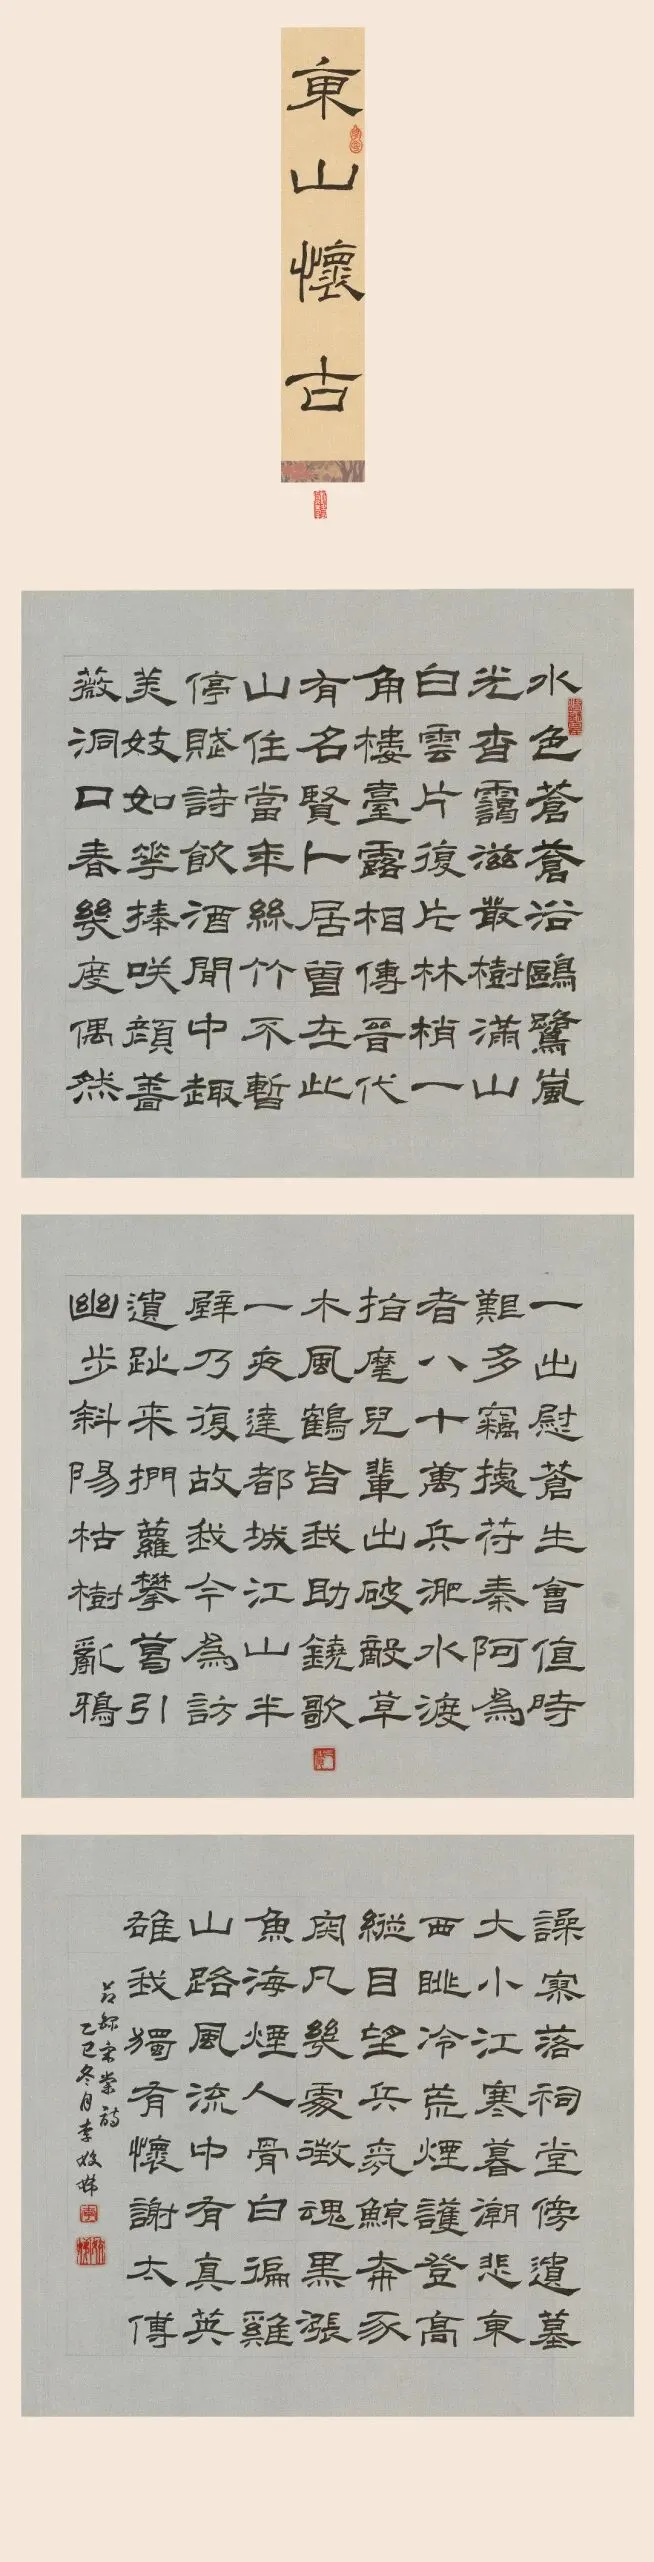 東山懷古
水色蒼蒼浴鷗鷺嵐
光杳靄滋叢樹滿山
白雲片復片林梢一
角樓臺露相傳晉代
有名賢卜居曾在此
山住當年絲竹不暫
停賦詩飲酒閒中趣
美妓如華捧咲顏薔
薇洞口春幾度偶然
一出慰蒼生會值時
艱多竊據苻秦阿為
者八十萬兵淝水渡
指麾兒輩出破敵草
木風鶴皆我助鐃歌
一夜達都城江山半
壁乃復故我今為訪
遺趾来捫蘿攀葛引
幽步斜陽枯樹亂鴉
譟寥落祠堂傍遺墓
大小江寒暮潮悲東
西眺冷荒煙護登高
縱目望兵氛鯨奔豕
突凡幾處徵魂黑漲
魚海煙人骨白徧雞
山路風流中有真英
雄我獨有懷謝太傅
宋棠詩
乙巳冬月李